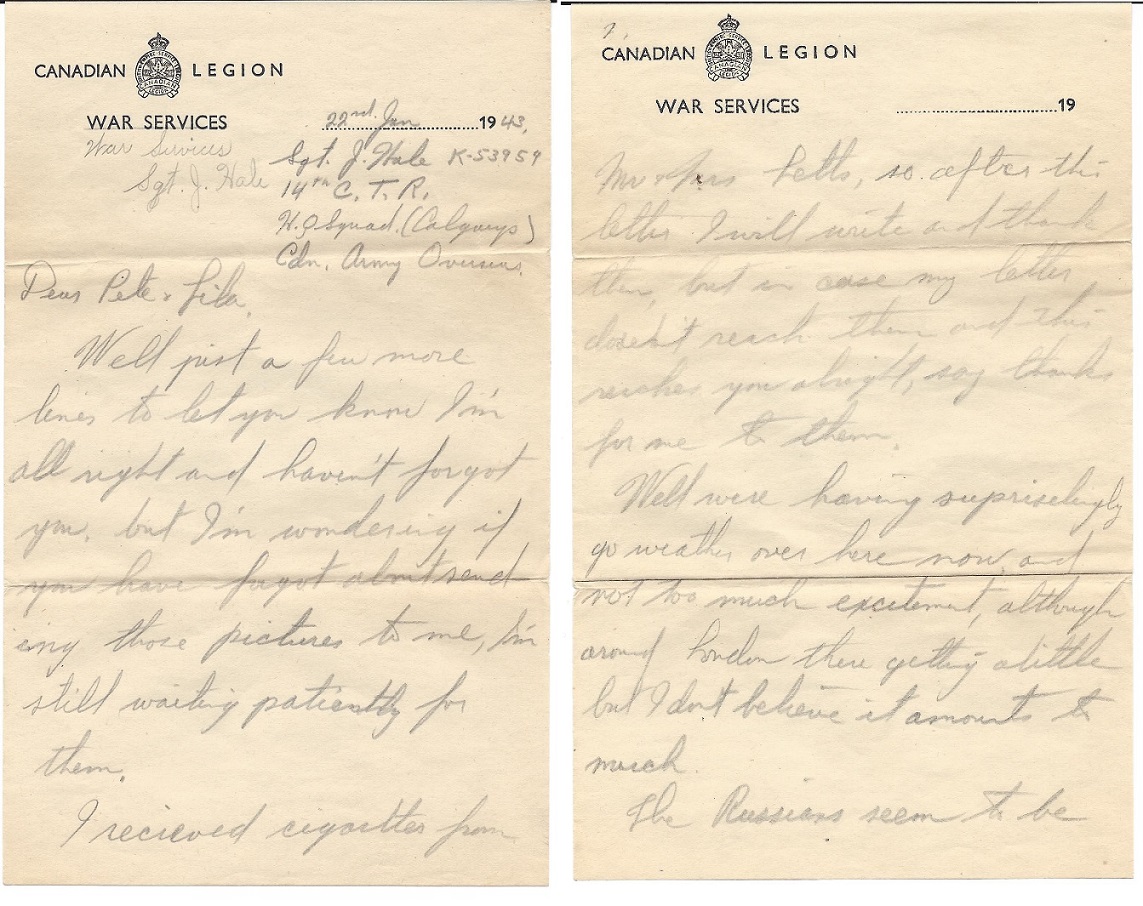 CANADIAN LEGION
WAR SERVICES
22nd. Jan 1943,
War Services
Sgt. J. Hale
Sgt. J. Hale K-53959
14th C. T. R.
H.Q Squad. (Calgarys)
Cdn. Army Overseas.
Dear Pete & Lila,
Well just a few more
lines to let you know I'm
all right and haven't forgot
you, but I'm wondering if
you have forgot about send
ing those pictures to me, I'm
still waiting patiently for
them.
I recieved cigarettes from
2.
CANADIAN LEGION
WAR SERVICES
19
Mr & Mrs Petts, so after this
letter I will write and thank
them, but in case my letter
doesn't reach them and this
reaches you alright, say thanks
for me to them.
Well were having surpriselingly
go weather over here now, and
not too much excitement, although
around London there getting a little
but I dont believe it amounts to
much.
The Russians seem to be